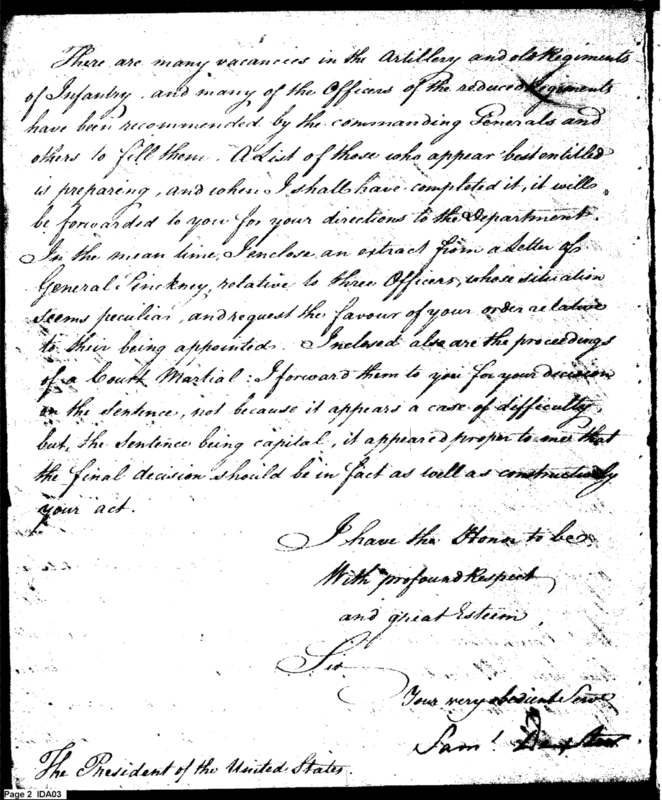 There are many vacancies in the Artillery and old Regiments
of Infantry and many of the Officers of the reduced Regiments
have been recommended by the commanding Generals and
others to fill them. A List of those who appear best entitled
is preparing, and when I shall have completed it, it will
be forwarded to you for your directions to the Department.
In the mean time, I enclose an extract from a Letter of
General Pinckney, relative to three Officers, whose situation
seems peculiar, and request the favour of your order relative
to their being appointed. Inclosed also are the proceedings
of a Court Martial: I forward them to you for your decision
on the sentence, not because it appears a case of difficulty
but, the Sentence being capital, it appeared proper to me that
the final decision should be in fact as well as constructively
your act.
I have the Honor to be
With profound Respect
and great Esteem,
Sir
Your very obedient Serv
Sam! Dexter
The President of the United States.
Page 2 IDA03